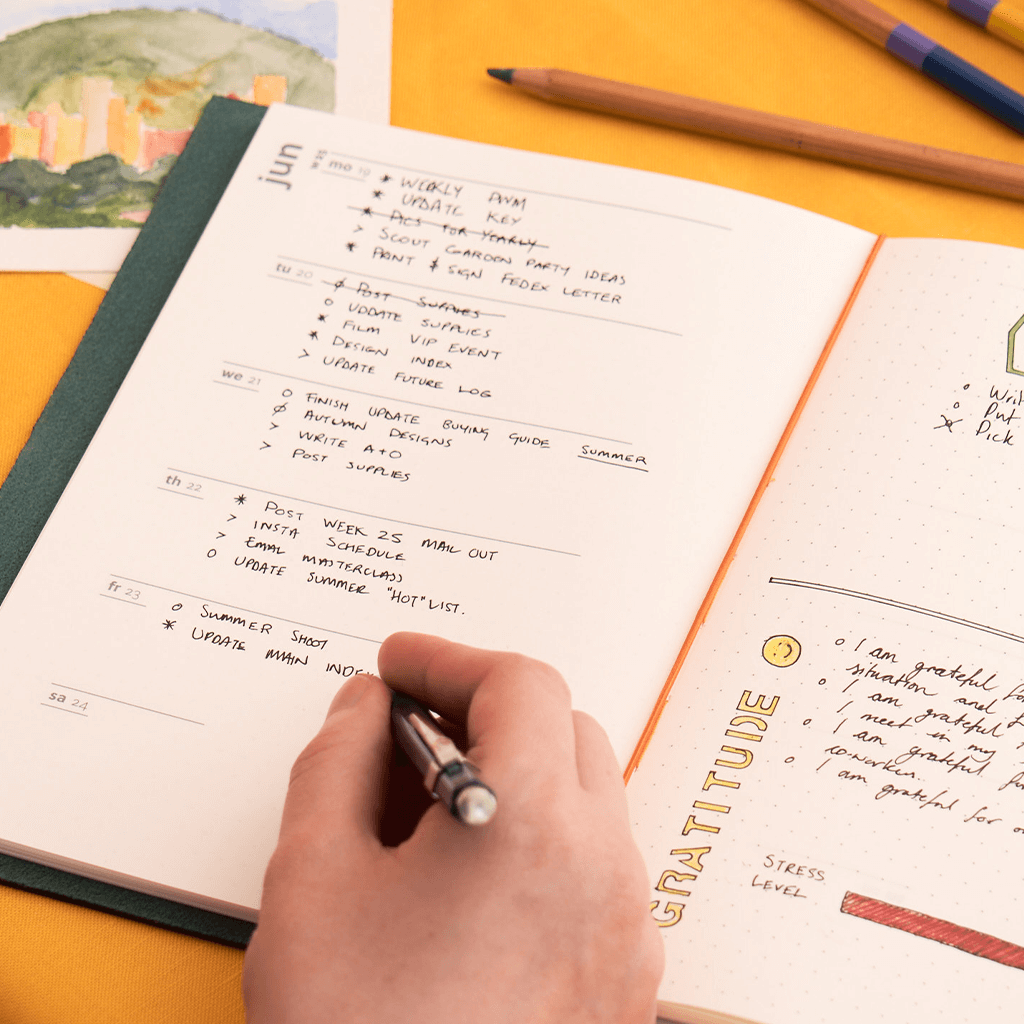 jun
mo 19
* WEEKLY PWM
* UPDATE KEY
* PICS FOR YEARLY
> SCOUT GARDEN PARTY IDEAS
* PRINT & SIGN FEDEX LETTER
tu 20
POST SUPPLIES
o UPDATE SUPPLIES
* FILM VIP EVENT
* DESIGN INDEX
> UPDATE FUTURE LOG
we 21
o FINISH UPDATE BUYING GUIDE SUMMER
ø AUTUMN DESIGNS
> WRITE A+O
> POST SUPPLIES
th 22
* POST WEEK 25 MAIL OUT
> INSTA SCHEDULE
> EMAIL MASTERCLASS
o UPDATE SUMMER "HOT" LIST.
fr 23
o SUMMER SHOOT
* UPDATE MAIN INDEX
sa 24
Put
Pick
GRATITUDE
o I am grateful for
situation and
o I am grateful
I meet in my
o I am grateful for
co-worker.
o I am grateful for
STRESS
LEVEL